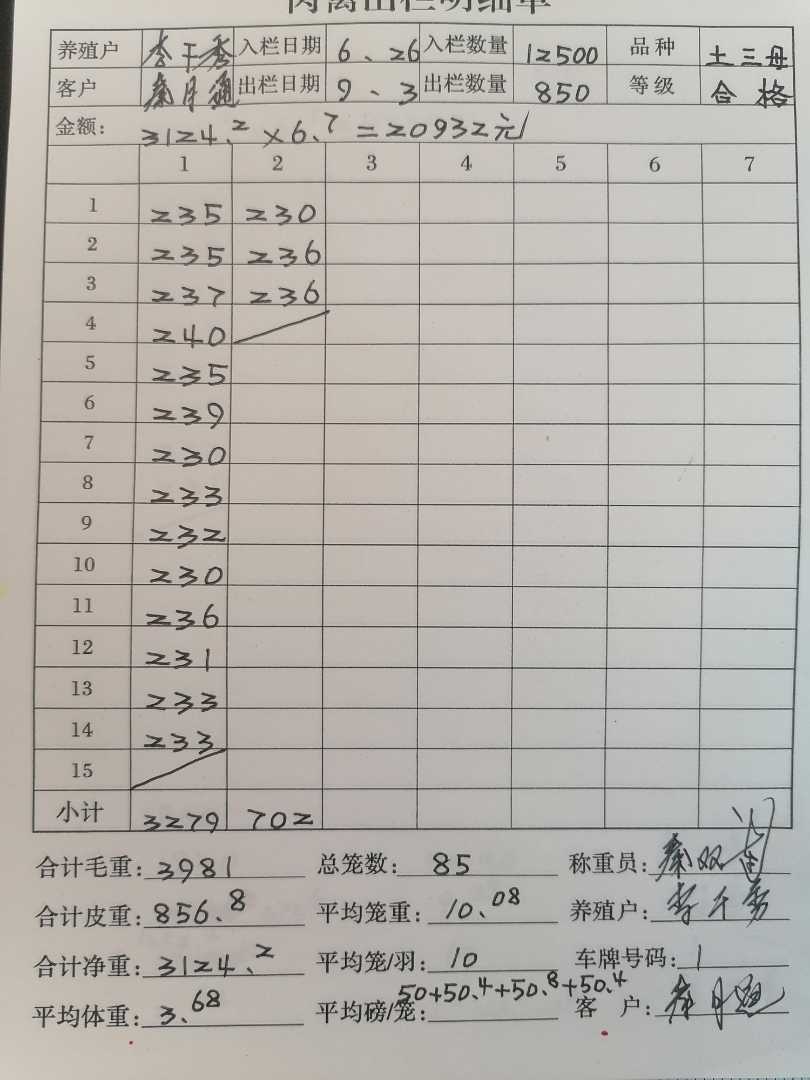 肉禽出栏明细单
养殖户 李千秀 入栏日期 6、26 入栏数量 12500 品种 土三母
客户 秦月通 出栏日期 9、3 出栏数量 850 等级 合格
金额: 3124.2×6.7=20932元
1 2 3 4 5 6 7
1 235 230
2 235 236
3 237 236
4 240
5 235
6 239
7 230
8 233
9 232
10 230
11 236
12 231
13 233
14 233
15
小计 3279 702
合计毛重: 3981 总笼数: 85 称重员: 秦双
合计皮重: 856.8 平均笼重: 10.08 养殖户: 李千秀
合计净重: 3124.2 平均笼/羽: 10 车牌号码: 1
平均体重: 3.68 平均磅/笼: 50+50.4+50.8+50.4 客户: 秦月通